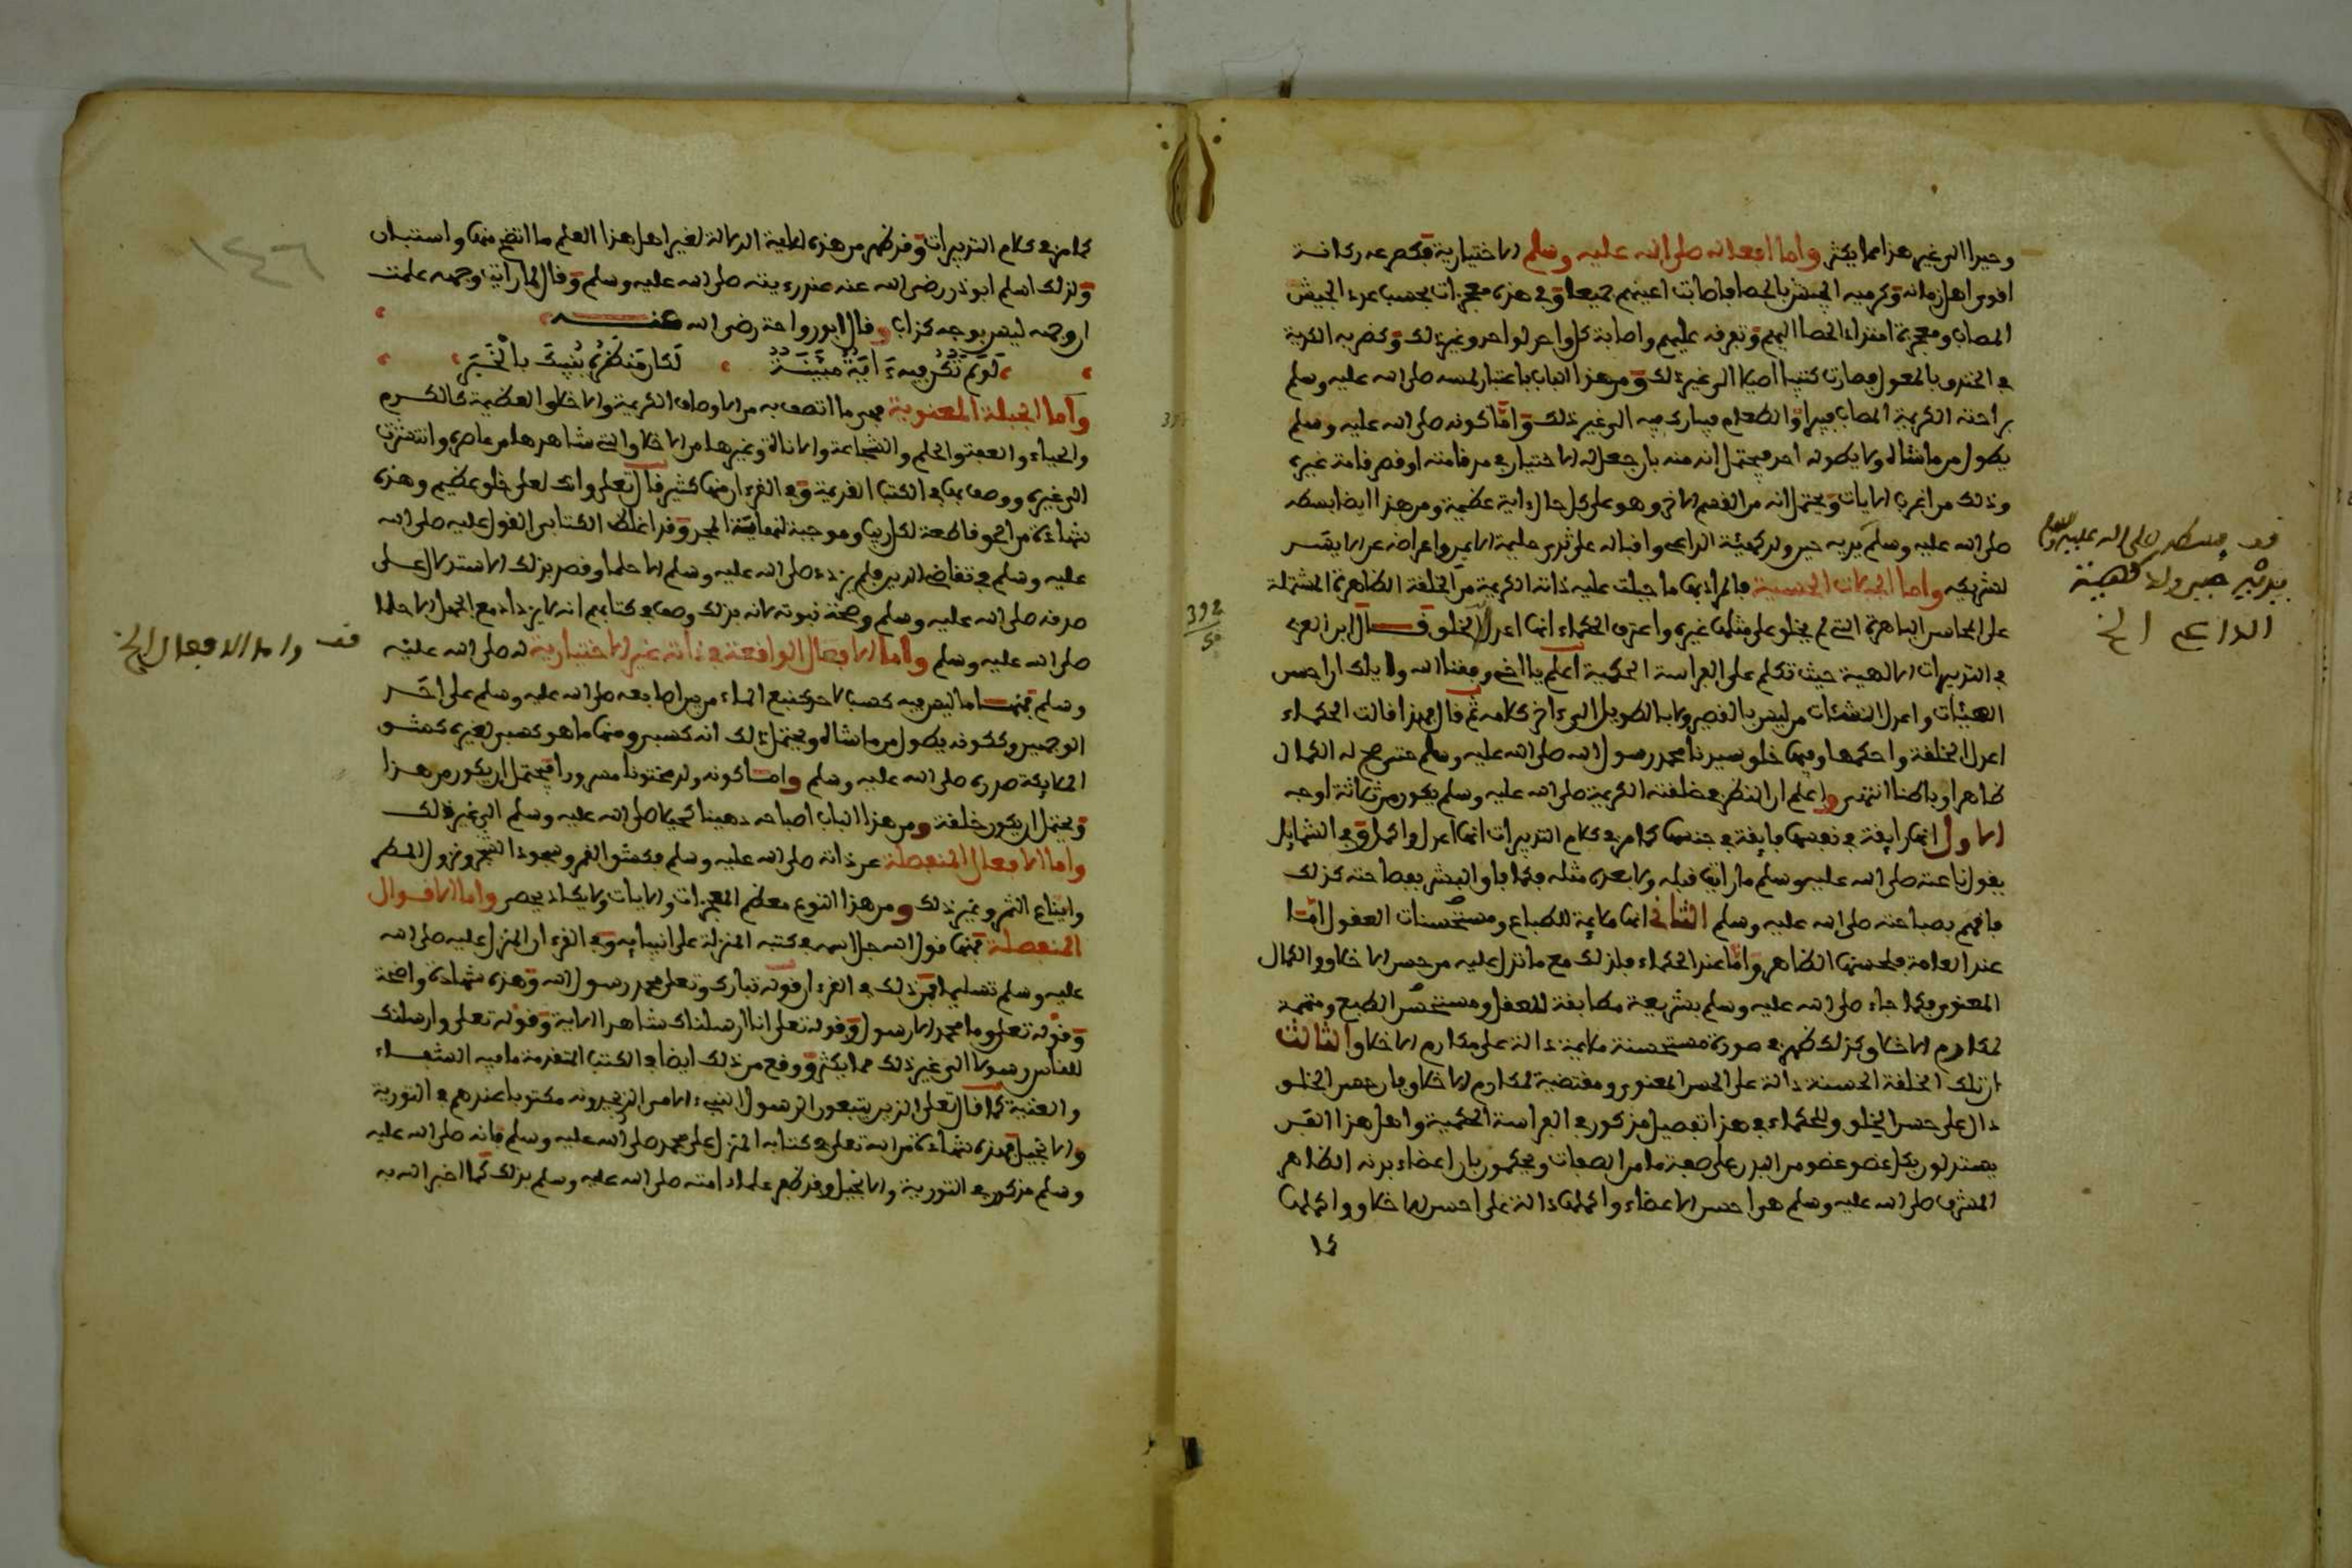 وحيرا الى غير هذا مما يكثر واما افعاله صلى الله عليه وسلم الاختيارية فكصرعه ركانة
اقوى اهل زمانه وكرميه الجيش بالحصا فاصابت اعينهم جميعا وفي هذه معجزات بحسب عدد الجيش
المصاب ومعجزة امتداد الحصا اليهم وتفرقه عليهم واصابة كل واحد لواحد وغير ذلك وكضربه الكدية
في الخندق بالمعول فصارت كثيبا الى غير ذلك ومن هذا الباب باعتبار لمسه صلى الله عليه وسلم
براحته الكريمة المصاب فيبرا والطعام فيبارك فيه الى غير ذلك واما كونه صلى الله عليه وسلم
يطول من ماشاه ولا يطوله احد فيحتمل انه منه بان جعل له الاختيار في مد قامته او قصر قامة غيره
وذلك من اغرب الايات ويحتمل انه من القسم الاخر وهو على كل حال ءاية عظيمة ومن هذا ايضا بسطه
صلى الله عليه وسلم يديه حين ولد كهيئة الداعي واقباله على ثدي حليمة الايمن واعراضه عن الايسر
لشريكه واما الجبلات الحسية فالمراد بها ما جبلت عليه ذاته الكريمة من الخلقة الظاهرة المشتملة
على المحاسن الباهرة التي لم يخلق على مثلها غيره واعترف الحكماء انها اعدل الخلق قال ابن العربي
في التدبيرات الالهية حيث تكلم على الفراسة الحكمية اعلم يا اخي وفقنا الله واياك ان احسن
الهيئات واعدل النشئات من ليس بالقصير ولا بالطويل الى ءاخر كلامه ثم قال فهذا قالت الحكماء
اعدل الخلقة واحكمها وفيها خلق سيدنا محمد رسول الله صلى الله عليه وسلم حتى صح له الكمال
ظاهرا وباطنا انتهى واعلم ان النظر في خلقته الكريمة صلى الله عليه وسلم يكون من ثلاثة اوجه
الاول انها رايقة في نفسها فايقة في جنسها كما مر في كلام التدبيرات انها اعدل واكمل وفي الشمايل
يقول ناعته صلى الله عليه وسلم ما رايت قبله ولا بعده مثله فكما فاق البشر بفصاحته كذلك
فاقهم بصباحته صلى الله عليه وسلم الثاني انها ملايمة للطباع ومستحسنات العقول اما
عند العامة فلحسنها الظاهر واما عند الحكماء فلذلك مع ما تدل عليه من حسن الاخلاق والكمال
المعنوي فكما جاء صلى الله عليه وسلم بشريعة مطابقة للعقل ومستحسن الطبع ومتممة
لمكارم الاخلاق كذلك ظهر في صورة مستحسنة ملايمة دالة على مكارم الاخلاق الثالث
ان تلك الخلقة الحسنة دالة على الحسن المعنوي ومقتضية لمكارم الاخلاق فان حسن الخلق
دال على حسن الخلق وللحكماء في هذا تفصيل مذكور في الفراسة الحكمية واهل هذا الفن
يستدلون بكل عضو عضو من البدن على صفة ما من الصفات ويحكمون بان اعضاء بدنه الظاهر
المشرف صلى الله عليه وسلم هي احسن الاعضاء واكملها دالة على احسن الاخلاق واكملها
كما
قف بسطه صلى الله عليه وسلم
يديه حين ولد كهيئة
الداعي الخ
392
كما مر في كلام التدبيرات وقد ظهر من هذه لطاية الدلالة لغير اهل هذا العلم ما اتضح منها واستبان
ولذلك اسلم ابو ذر رضي الله عنه عند رؤيته صلى الله عليه وسلم وقال لما رايت وجهه علمت
ان وجهه ليس بوجه كذاب وقال ابن رواحة رضي الله عنه
لو لم تكن فيه ءاية مبينة لكان منظره ينبيك بالخبر
واما الجبلة المعنوية فهي ما اتصف به من الاوصاف الكريمة والاخلاق العظيمة كالكرم
والحياء والعفة والحلم والشجاعة والاناة وغيرها من الاخلاق التي شاهدها من عاصره وانتشرت
الى غيره ووصف بها في الكتب القديمة وفي القرءان منها كثير قال تعلى وانك لعلى خلق عظيم وهذه
شهادة من الحق قاطعة لكل ريب وموجبة لنهاية المجد وقد اغلظ الكتابي القول عليه صلى الله
عليه وسلم في تقاضي الدين فلم يزده صلى الله عليه وسلم الا حلما وقصد بذلك الاستدلال على
صدقه صلى الله عليه وسلم وصحة نبوته لانه بذلك وصف في كتابهم انه لا يزداد مع الجهل الا حلما
صلى الله عليه وسلم واما الافعال الواقعة في ذاته غير الاختيارية له صلى الله عليه
وسلم فمنها ما ليس فيه كسب لاحد كنبع الماء من بين اصابعه صلى الله عليه وسلم على احد
الوجهين وككونه يطول من ماشاه ويحتمل ذلك انه كسبي ومنها ما هو كسبي لغيره كشق
الملايكة صدره صلى الله عليه وسلم واما كونه ولد مختونا مسرورا فيحتمل ان يكون من هذا
ويحتمل ان يكون خلقة ومن هذا الباب اصباحه دهينا كحيلا صلى الله عليه وسلم الى غير ذلك
واما الافعال المنفصلة عن ذاته صلى الله عليه وسلم فكشق القمر وسجود الشجر ونزول المطر
وايناع الثمر وغير ذلك ومن هذا النوع معظم المعجزات والايات ولا يكاد يحصر واما الاقوال
المنفصلة فمنها قول الله جل اسمه في كتبه المنزلة على انبيايه وفي القرءان المنزل عليه صلى الله
عليه وسلم تسليما فمن ذلك في القرءان قوله تبارك وتعلى محمد رسول الله وهذه شهادة واضحة
وقوله تعلى وما محمد الا رسول وقوله تعلى انا ارسلناك شاهدا الاية وقوله تعلى وارسلناك
للناس رسولا الى غير ذلك مما يكثر ووقع من ذلك ايضا في الكتب المتقدمة ما فيه الشفاء
والغنية كما قال تعلى الذين يتبعون الرسول النبيء الامي الذي يجدونه مكتوبا عندهم في التورية
والانجيل فهذه شهادة من الله تعلى في كتابه المنزل على محمد صلى الله عليه وسلم فانه صلى الله عليه
وسلم مذكور في التورية والانجيل وقد ظهر علماء امته صلى الله عليه وسلم بذلك كما اخبر الله به
قف واما الافعال الخ
١٤٦